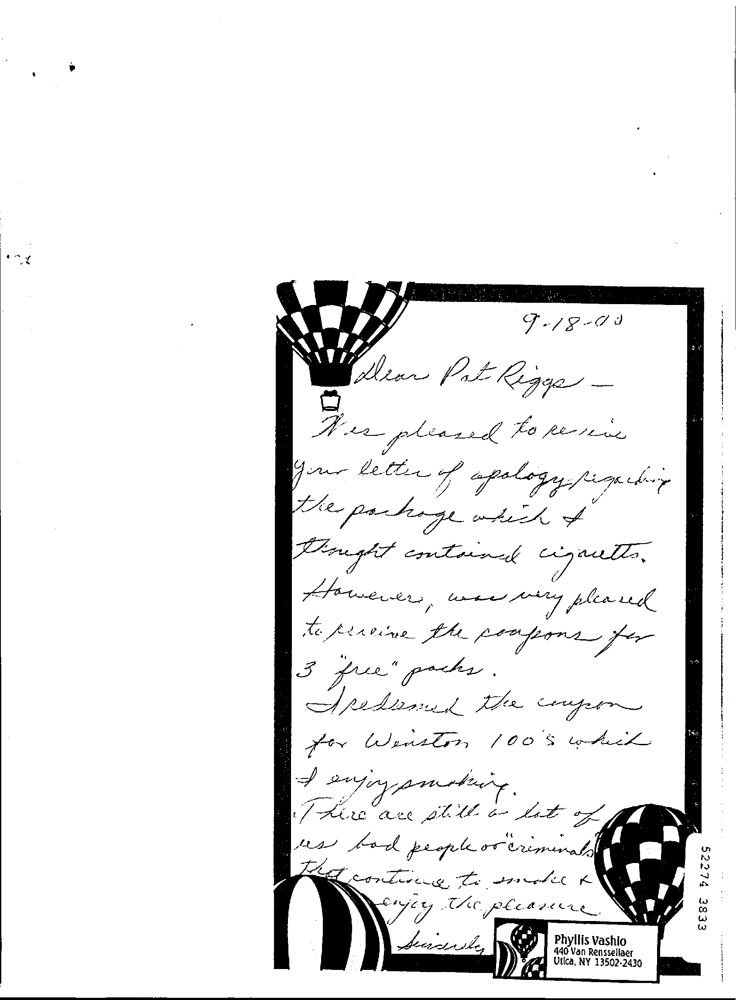 9-18-00
Dear Pat Riggs –
Was pleased to receive
your letter of apology regarding
the package which I
thought contained cigaretts.
However, was very pleased
to receive the coupons for
3 "free" packs.
I redeemed the coupon
for Winston 100's which
I enjoy smoking.
There are still a lot of
us bad people or "criminals"
that continue to smoke &
enjoy the pleasure
Sincerely
Phyllis Vashio
440 Van Renssellaer
Utica, NY 13502-2430
52274 3833